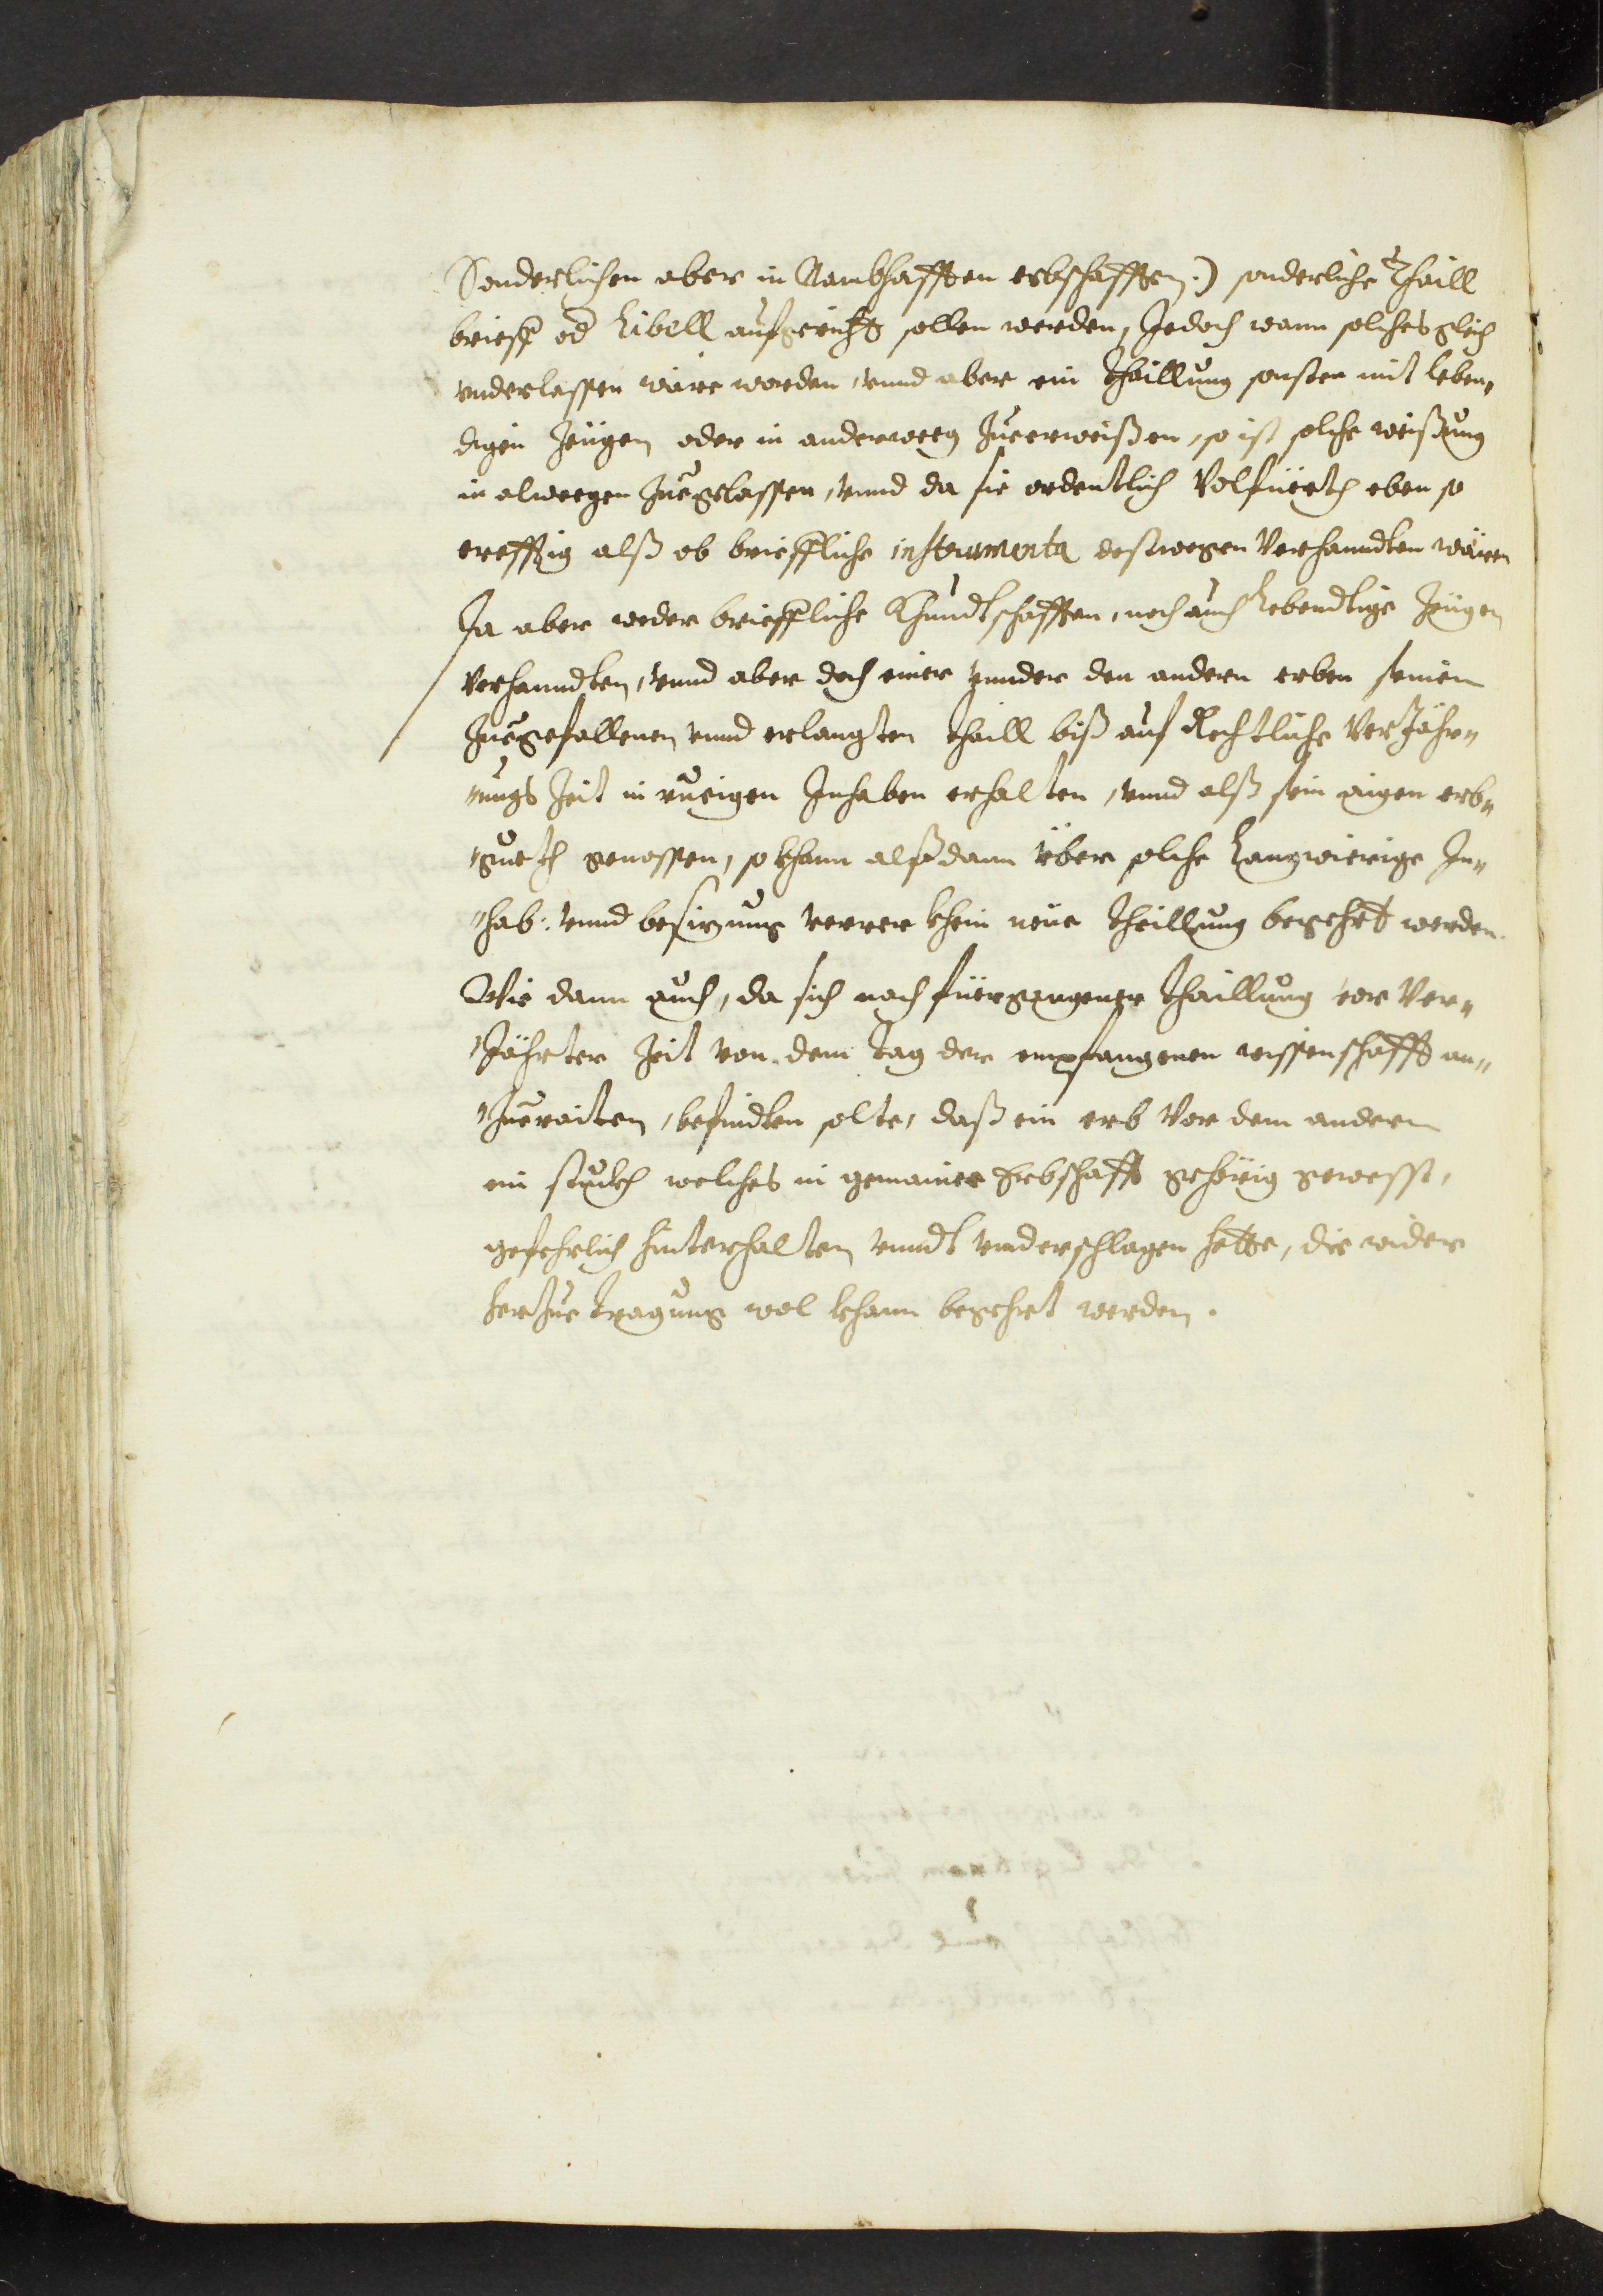 Sonderlichen aber in Nambhafften erbschafften.) sonderliche Thaill
brieff od Libell aufgericht sollen werden, Jedoch wann solches gleich
vnderlassen wäre worden, vnnd aber ein thaillung sonsten mit leben„
digen Zeügen oder in anderweeg Zuerweißen, so ist solche weißung
in alweegen Zuegelassen, vnnd da sie ordentlich Volfüerth eben so
crefftig alß ob brieffliche instrumenta destwegen Verhanndten wären
Ja aber weder brieffliche Khundtschafften, noch auch Lebendtige Zeügen
Verhanndten, vnnd aber doch einer vnnder den andern erben seinen
Zuegefallenen vnnd erlangten thaill biß auf Rechtliche VerJähr„
„ungs Zeit in rueigen Inhaben erhalten, vnnd alß sein aigen erb„
„gueth genossen, so khann alßdann über solche Langwierige In„
„hab: vnnd besizung verrer khein neüe theillung begehrt werden.
Wie dann auch, da sich nach füergangener thaillung vor Ver„
„Jährter Zeit von dem Tag der empfangenen wissenschafft an„
„Zueraiten, befindten solte, daß ein erb Vor dem andern
ein stuckh welches in gemainer Erbschafft gehörig gewesst,
gefehrlich hinterhalten vnndt vnderschlagen hette, die wider
herZue tragung wol khann begehrt werden.